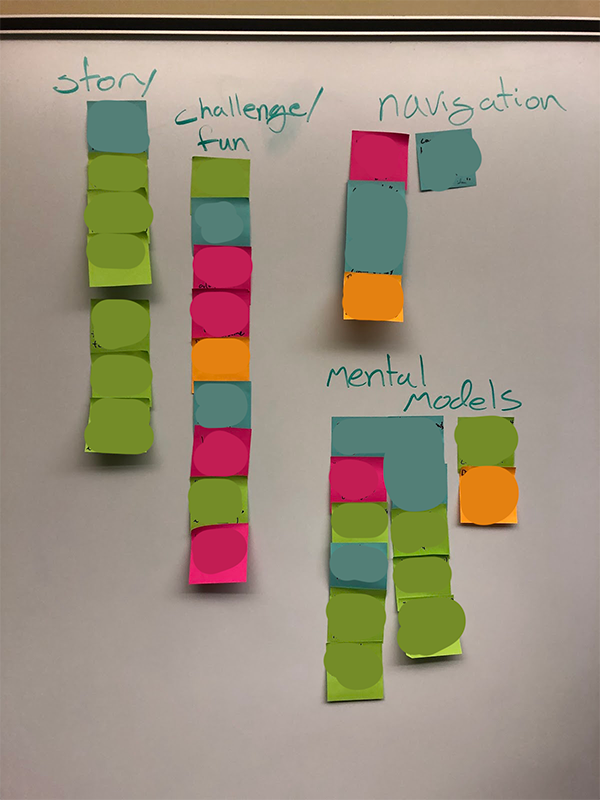 story
challenge/
fun
navigation
Mental
Models